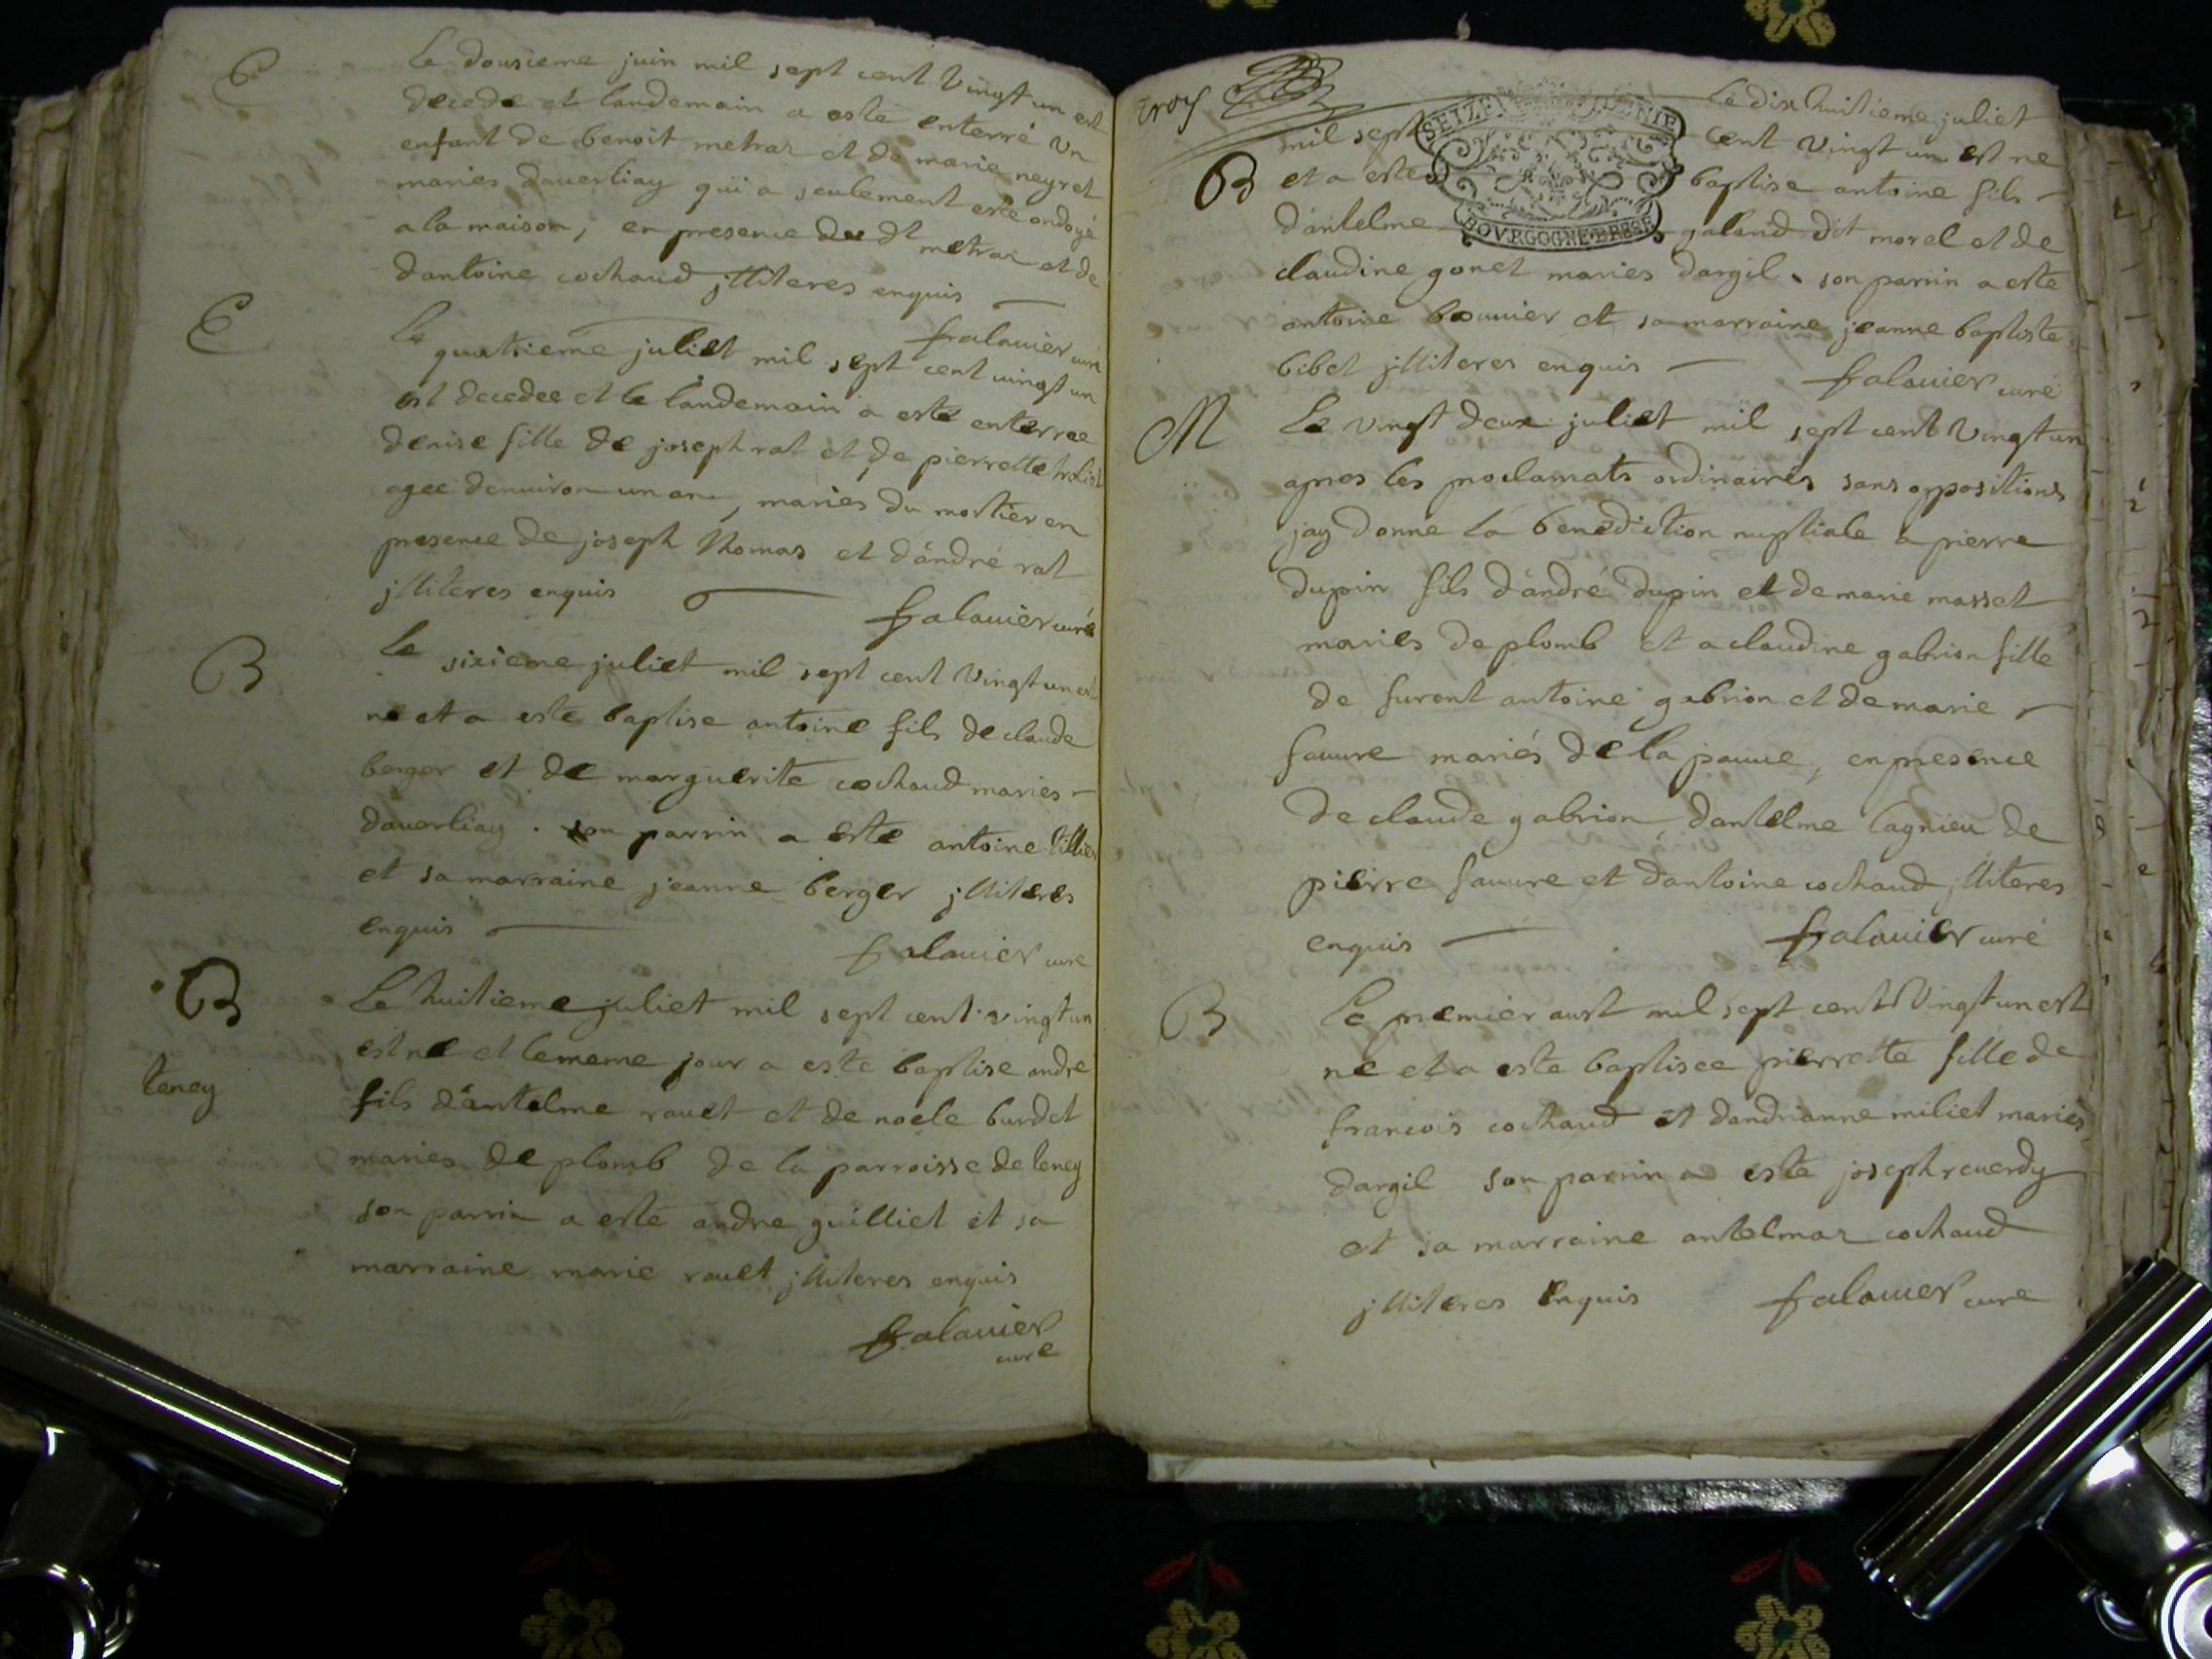 E
Le dousieme juin mil sept cent Vingt un est
decede et landemain a este enterré un
enfant de benoit metraz et de marie neyret
maries daverliay qui a seulement este ondoyé
a la maison, en presence du dt metraz et de
dantoine cochaud jlliteres enquis
falavier curé
E
Le
quatrieme juliet mil sept cent vingt un
est decedee et le landemain a esté enterree
denise fille de joseph rat et de pierrette
agee denuiron un an, maries du mortier en
presence de joseph thomas et dándré rat
jlliteres enquis
falavier curé
B
Le sixieme juliet mil sept cent Vingt un est
ne et a este baptise antoine fils de claude
berger et de marguerite cochaud maries
daverliay . son parrin a este antoine tillier
et sa marraine jeanne berger jlliteres
enquis
falavier cure
B
Le huitieme juliet mil sept cent vingt un
est ne et le meme jour a este baptise andre
teney
fils dántelme rauet et de noele burdet
maries de plomb de la parroisse de teney
son parrin a esté andre guilliet et sa
marraine marie rauet jlliteres enquis
falavier
cure
troy
Le dix huitieme juliet
mil sept cent vingt un est ne
B
et a este baptise antoine fils
dántelme galand dit morel et de
SEIZE
BOVRGOGNE·BRESSE
claudine gonet maries dargil . son parrin a esté
antoine bouuier et sa marraine jeanne baptiste
bibet jlliteres enquis
falavier curé
M
Le vingt deux juliet mil sept cent Vingt un
apres les proclamats ordinaires sans oppositions
jay donné la benediction nuptiale a pierre
dupin fils dándré dupin et de marie masset
maries de plomb et a claudine gabrion fille
de furent antoine gabrion et de marie
fauure mariés de la paune, en presence
de claude gabrion dantelme lagnieu de
pierre fauure et dantoine cochaud jlliteres
enquis
falavier curé
B
Le premier aust mil sept cent Vingt un est
né et a esté baptisee pierrette fille de
francois cochaud et dandrianne miliet mariés
dargil son parrin a este joseph reuerdy
et sa marraine antelmaz cochaud
jlliteres enquis falavier cure